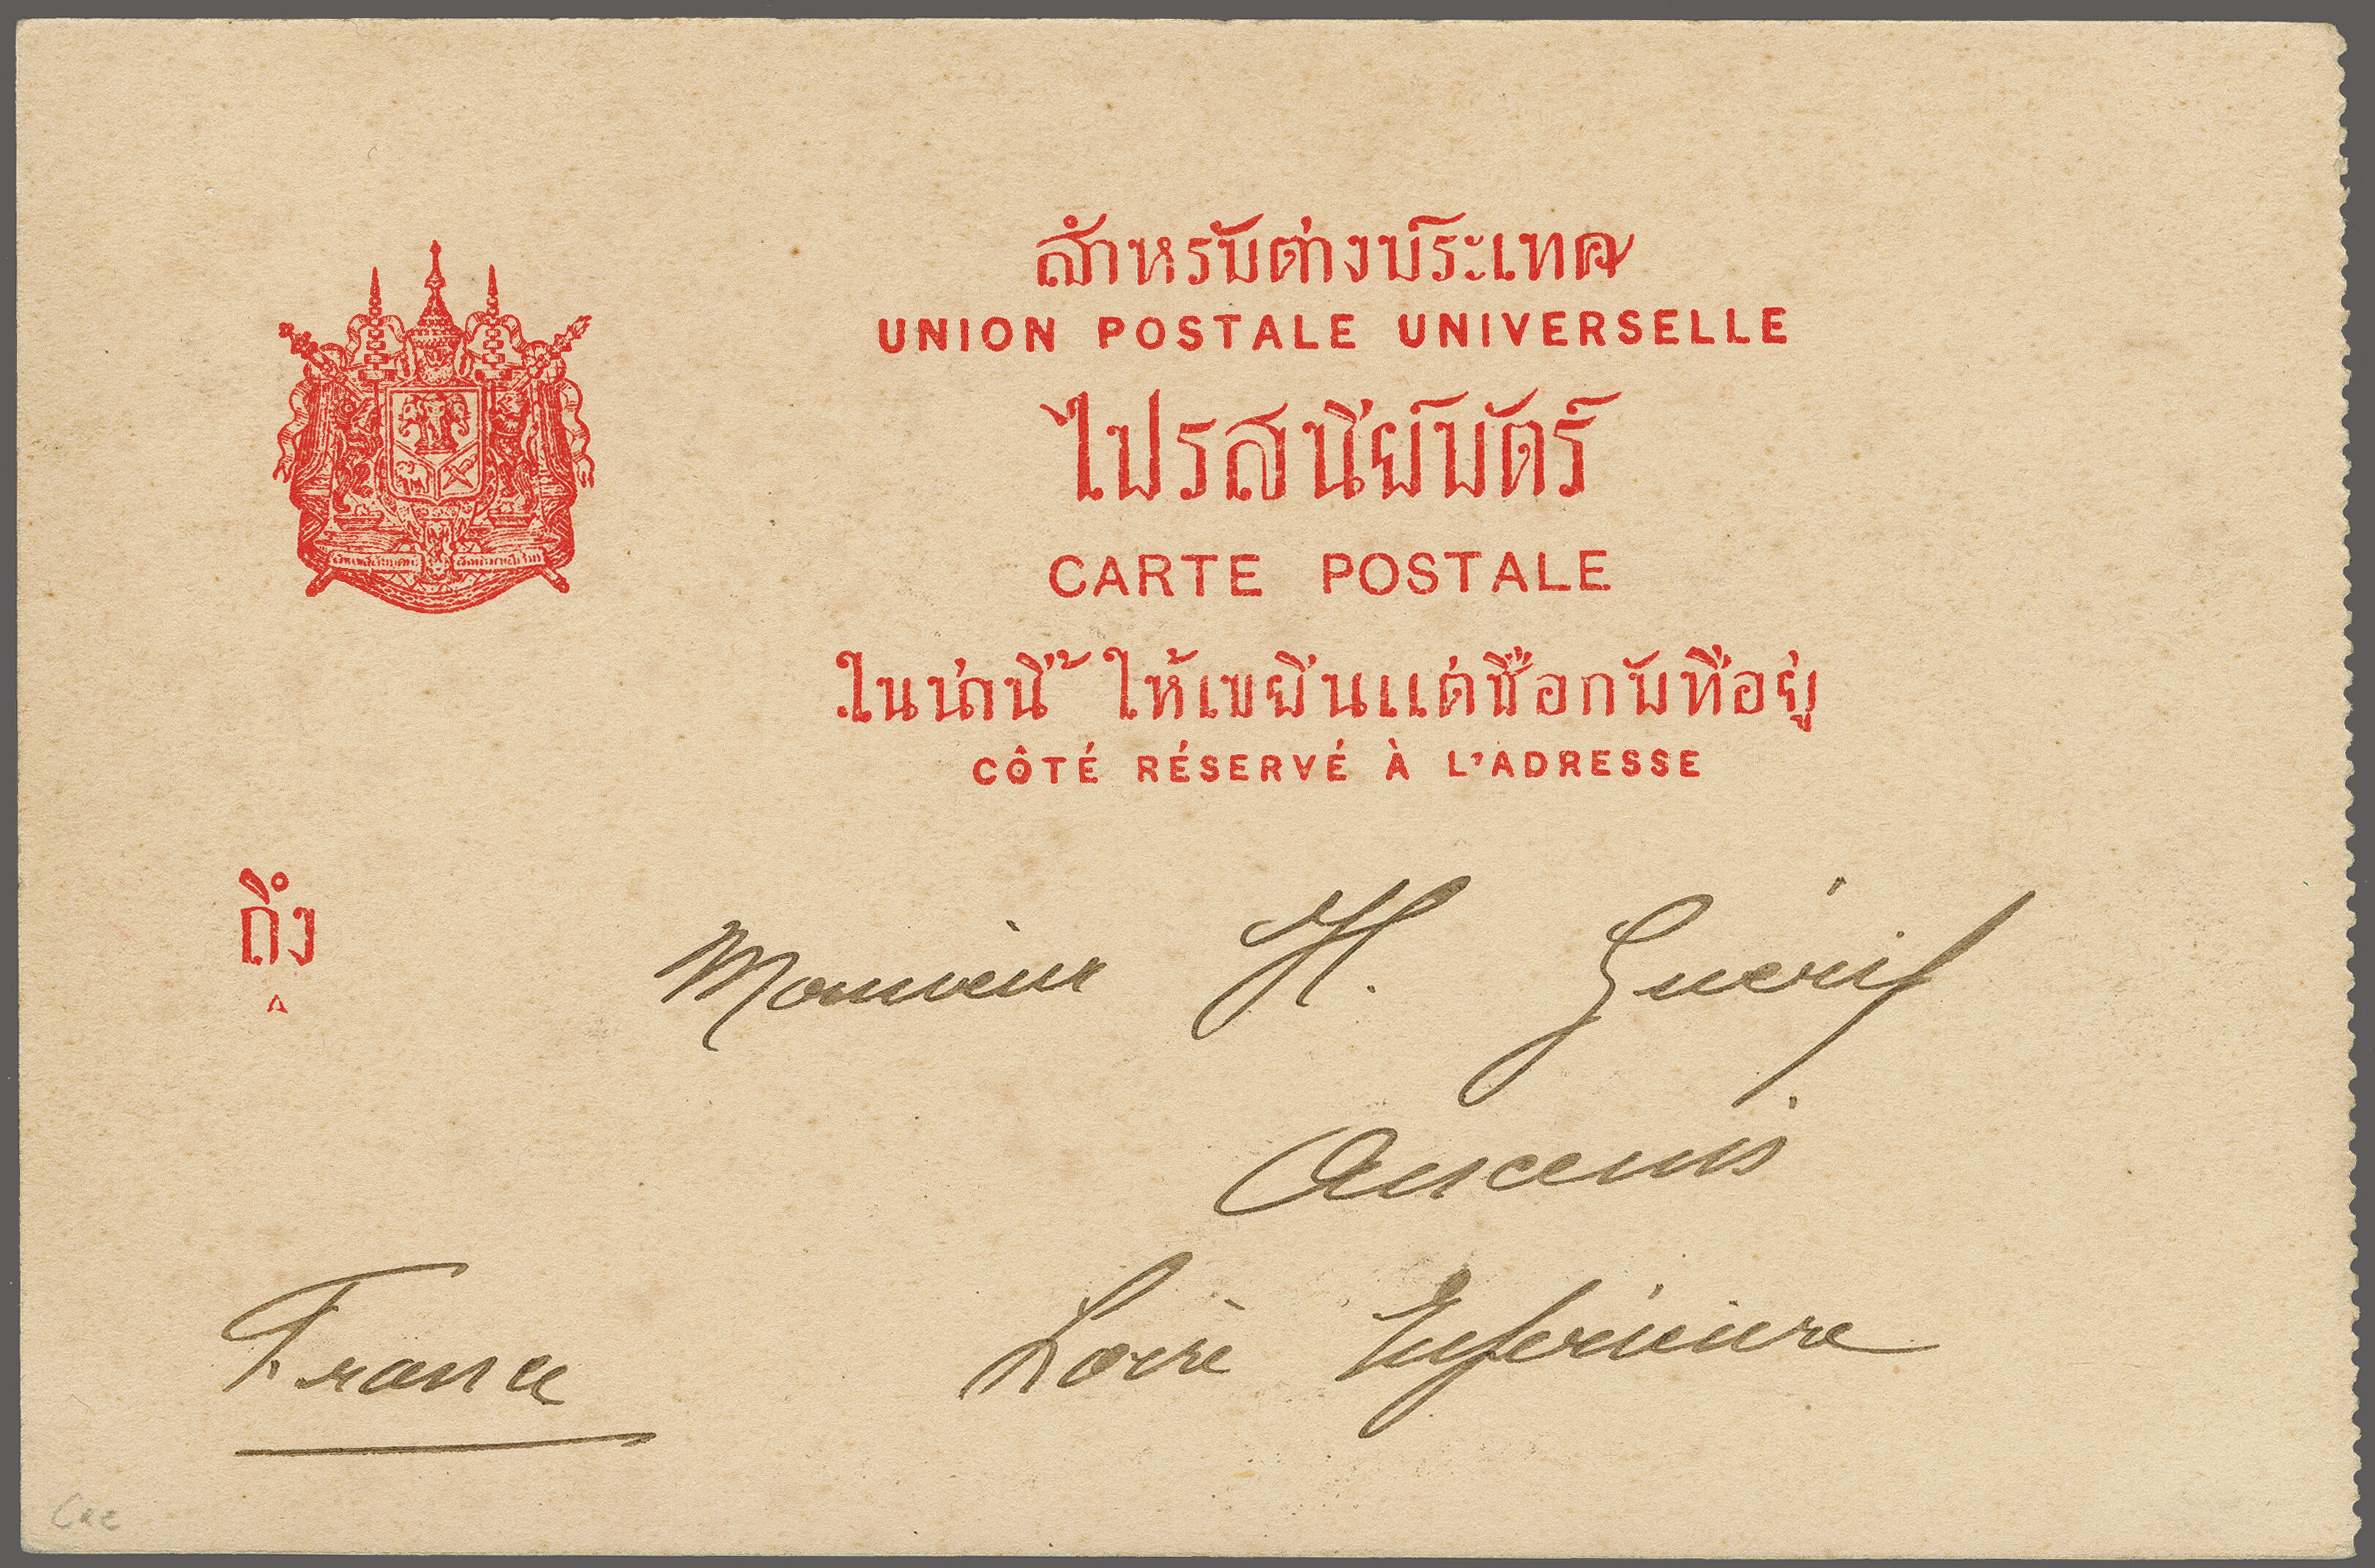 สำหรับต่างประเทศ
UNION POSTALE UNIVERSELLE
ไปรสนีย์บัตร์
CARTE POSTALE
ในน่านี้ ให้เขยีนแต่ชื่อกับที่อยู่
CÔTÉ RÉSERVÉ À L'ADRESSE
ถึง
A
Monsieur H. Guérif
Ancenis
Loire Inférieure
France